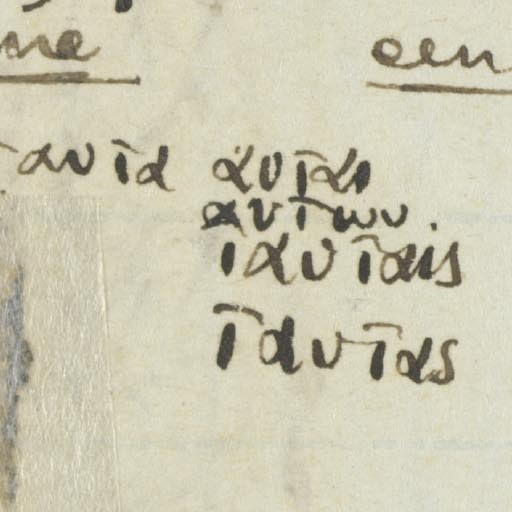 ταυτα αυται
αυτων
ταυταις
ταυτας